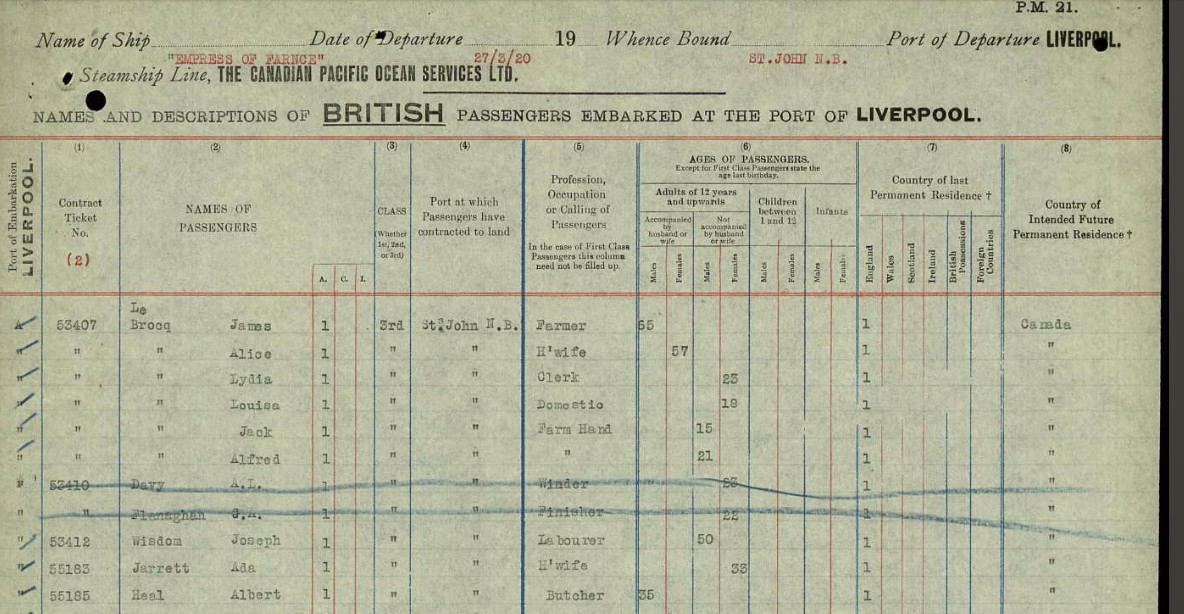 P.M. 21.
Name of Ship Date of Departure 19 Whence Bound Port of Departure LIVERPOOL.
"EMPRESS OF FARNCE" 27/3/20 ST.JOHN N.B.
Steamship Line, THE CANADIAN PACIFIC OCEAN SERVICES LTD.
NAMES AND DESCRIPTIONS OF BRITISH PASSENGERS EMBARKED AT THE PORT OF LIVERPOOL.
Port of Embarkation
LIVERPOOL.
(1)
Contract
Ticket
No.
(2)
(2)
NAMES OF
PASSENGERS
A. C. I.
(3)
CLASS
(Whether
1st, 2nd,
or 3rd)
(4)
Port at which
Passengers have
contracted to land
(5)
Profession,
Occupation
or Calling of
Passengers
In the case of First Class
Passengers this column
need not be filled up.
(6)
AGES OF PASSENGERS.
Except for First Class Passengers state the
age last birthday.
Adults of 12 years
and upwards
Accompanied
by
husband or
wife
Not
accompanied
by husband
or wife
Children
between
1 and 12
Infants
Males Females Males Females Males Females Males Females
(7)
Country of last
Permanent Residence †
England Wales Scotland Ireland British Possessions Foreign Countries
(8)
Country of
Intended Future
Permanent Residence †
Le
53407 Brocq James 1 3rd St. John N.B. Farmer 55 1 Canada
" " Alice 1 " " H'wife 57 1 "
" " Lydia 1 " " Clerk 23 1 "
" " Louisa 1 " " Domestic 18 1 "
" " " Jack 1 " " Farm Hand 15 1 "
" " " Alfred 1 " " " 21 1 "
" 53410 Davy A.L. 1 " " Winder 23 1 "
" " Flanaghan G.A. 1 " " Finisher 22 1 "
" 53412 Wisdom Joseph 1 " " Labourer 50 1 "
" 55183 Jarrett Ada 1 " " H'wife 33 1 "
" 55185 Heal Albert 1 " " Butcher 35 1 "